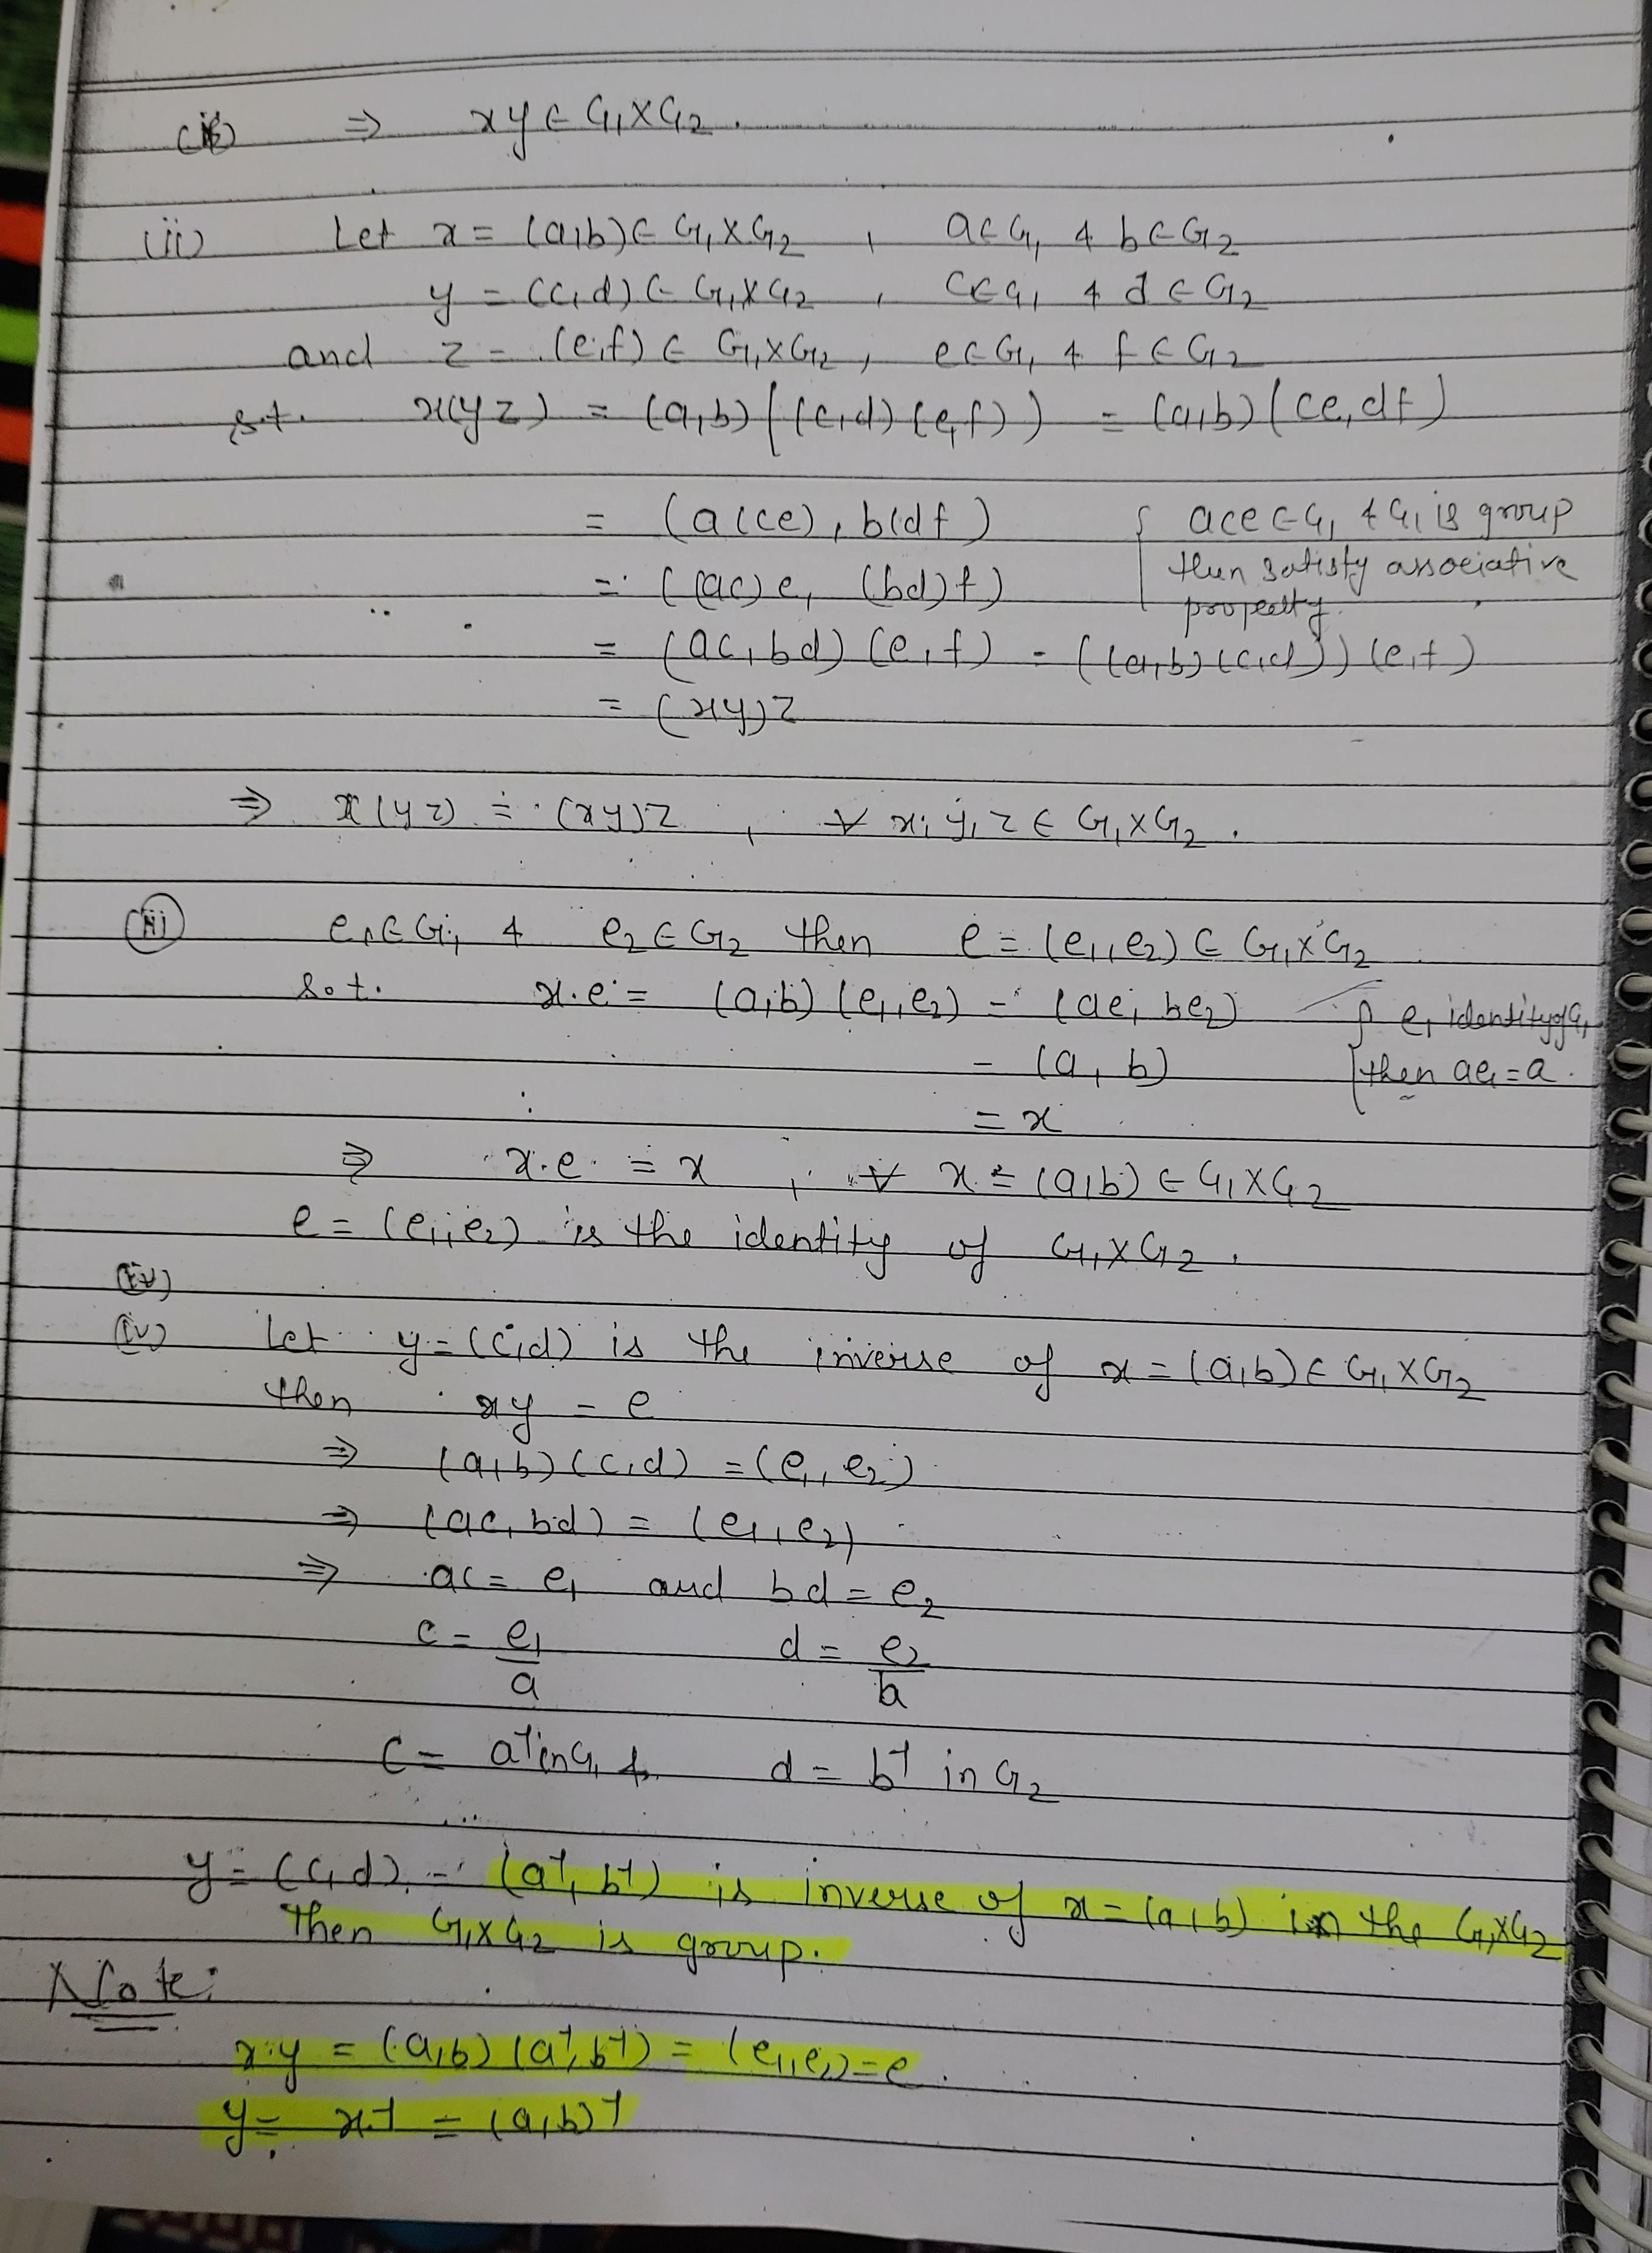 (ii) ⇒ xy ∈ G₁×G₂.
(ii) Let x = (a,b) ∈ G₁×G₂ , a∈G₁ & b∈G₂
y = (c,d) ∈ G₁×G₂ , c∈G₁ & d∈G₂
and z = (e,f) ∈ G₁×G₂, e∈G₁ & f∈G₂
s.t. x(yz) = (a,b)((c,d)(e,f)) = (a,b)(ce,df)
= (a(ce), b(df) { ace∈G₁ & G₁ is group
= ((ac)e, (bd)f) then satisfy associative
property.
= (ac,bd)(e,f) = ((a,b)(c,d))(e,f)
= (xy)z
⇒ x(yz) = (xy)z , ∀ x,y,z ∈ G₁×G₂.
(iii) e₁∈G₁, & e₂∈G₂ then e = (e₁,e₂) ∈ G₁×G₂
s.t. x.e = (a,b)(e₁,e₂) = (ae, be₂) { e₁ identity of G₁
= (a, b) then ae₁=a.
= x
⇒ x.e = x , ∀ x = (a,b) ∈ G₁×G₂
e = (e₁,e₂) is the identity of G₁×G₂.
(iv)
(iv) Let y=(c,d) is the inverse of x=(a,b)∈ G₁×G₂
then xy = e
⇒ (a,b)(c,d) = (e₁,e₂)
⇒ (ac,bd) = (e₁,e₂)
⇒ ac = e₁ and bd = e₂
c = e₁/a d = e₂/b
c = a⁻¹ in G₁ & d = b⁻¹ in G₂
y = (c,d) = (a⁻¹,b⁻¹) is inverse of x=(a,b) in the G₁×G₂
then G₁×G₂ is group.
Note:
x.y = (a,b)(a⁻¹,b⁻¹) = (e₁,e₂)=e.
y = x⁻¹ = (a,b)⁻¹